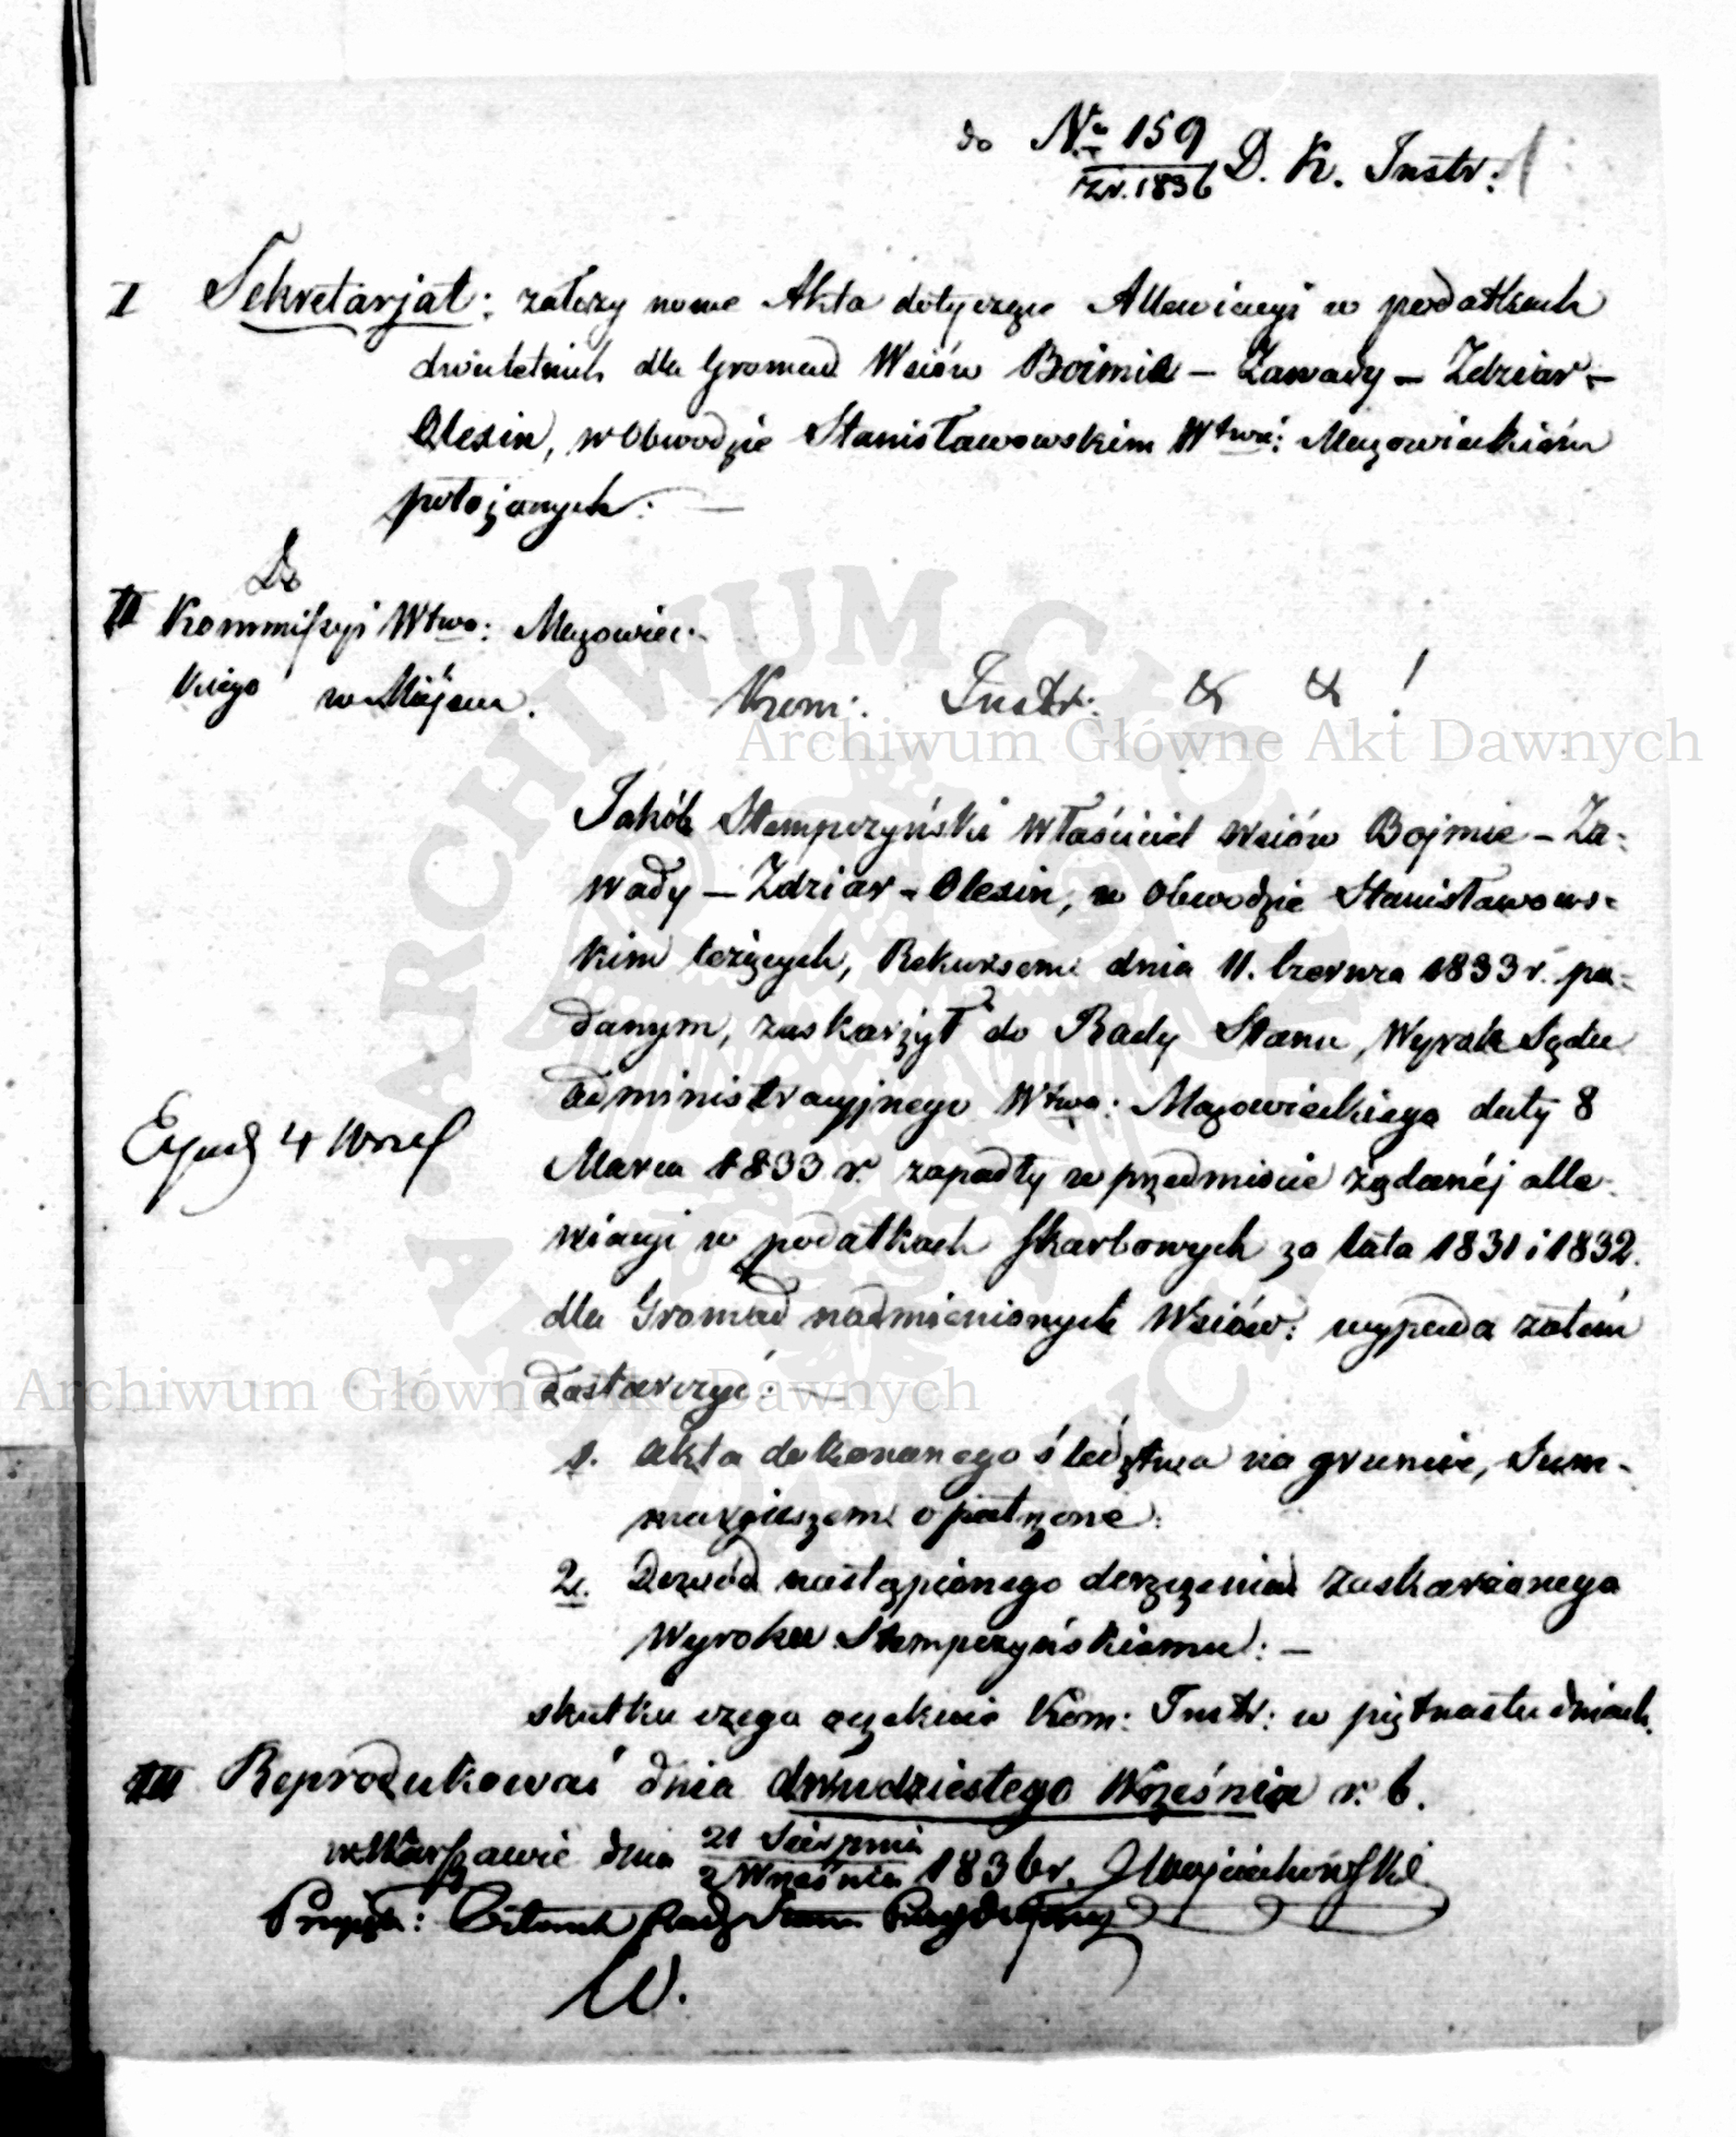 do № 159 D. K. Instr:
z r. 1836
I Sekretarjat: założy nowe Akta dotyczące Allewiacyi w podatkach
dwuletnich dla Gromad Wsiów Boimie – Zawady – Zdziar –
Olesin, w Obwodzie Stanisławowskim Wtwa: Mazowieckiém
położonych: —
Do
II Kommissyi Wtwa: Mazowiec-
kiego w Miéjscu.
Kom: Instr: & & !
Jakób Stempczyński właściciel wsiów Bojmie – Za-
wady – Zdziar – Olesin, w Obwodzie Stanisławows-
kim leżących, Rekursem dnia 11. Czerwca 1833 r. po-
danym, zaskarżył do Rady Stanu, Wyrok Sądu
administracyjnego Wtwa: Mazowieckiego daty 8
Marca 1833 r. zapadły w przedmiocie żądanéj alle-
wiacyi w podatkach skarbowych za lata 1831 i 1832.
dla Gromad nadmienionych Wsiów: wypada zatém
dostarczyć: —
1. akta dokonanego śledztwa na gruncie, Sum-
maryuszem opatrzone.
2. Dowód nastąpionego doręczenia zaskarżonego
Wyroku Stempczyńskiemu: —
skutku czego oczekuie Kom: Instr: w piętnastu dniach.
Exped 4 Wrześ
III Reprodukować dnia dwudziestego Września r. b.
w Warszawie dnia 21 Sierpnia
2 Września 1836 r. J Wojciechowski
Przyjął: Członek Rady Stanu
W.
Archiwum Główne Akt Dawnych
Archiwum Główne Akt Dawnych
ARCHIWUM GŁÓWNE
AKT DAWNYCH